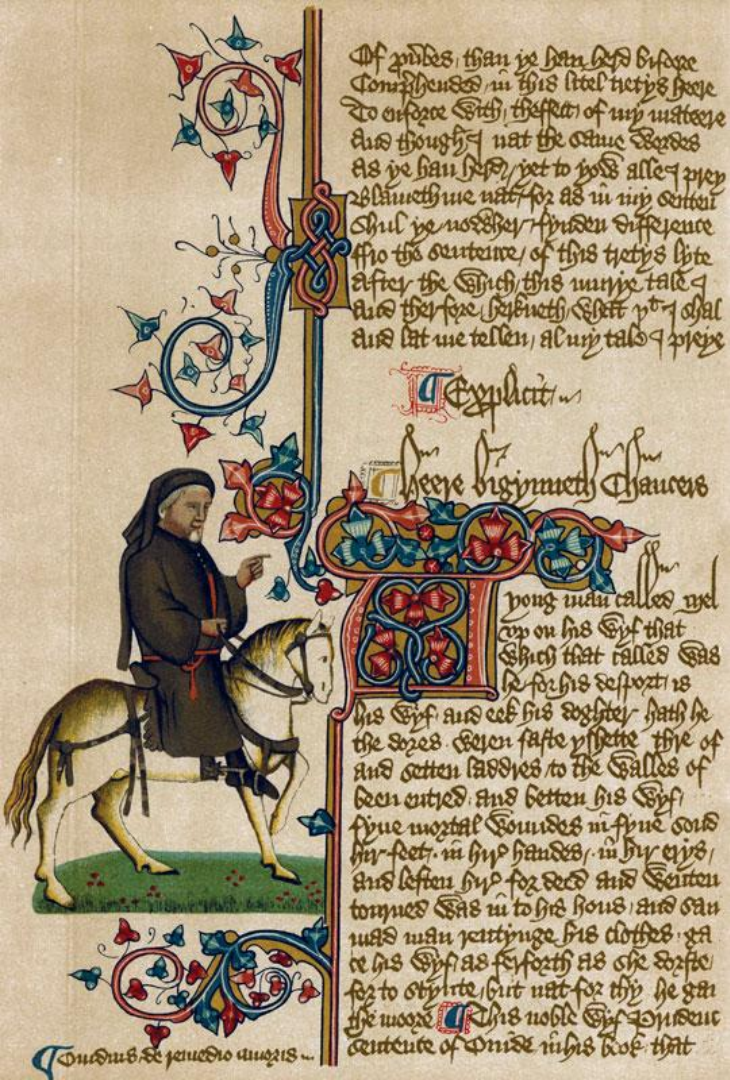 Of prũbes / than ye han herd bifore
Comprehended / in this litel tretys heere
To enforce with / theffect of my mateere
And though I nat the same wordes
As ye han herd / yet to yow alle I prey
Blameth me nat / for as in my senten
Shul ye nowher fynden difference
ffro the sentence / of this tretys lyte
After the which / this murye tale I
And therfore herkneth what yt I shal
And lat me tellen al my tale I preye
Explicit
Heere bigynneth Chaucers
yong man called Mel
vp on his wyf that
which that called was
he for his desport is
his wyf and eek his doghter hath he
the dores weren faste yshette thre of
and setten laddres to the walles of
been entred and betten his wyf
fyue mortal woundes in fyue sond
hir feet in hir handes in hir erys
and leften hir for deed and wenten
tourned was in to his hous and sau
mad man rentynge his clothes ga
ce his wyf as ferforth as she dorste
for to stynte but nat for thy he gan
the moore This noble wyf Prudenc
sentence of Ouide in his book that
Ouidius de remedio amoris